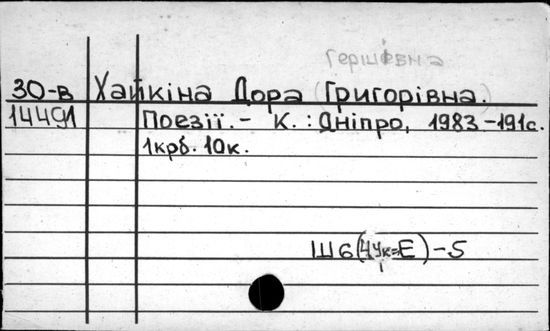 Гершівна
30-в Хайкіна Дора (Григорівна.
14491 Поезії. - К. : Дніпро, 1983 - 191с.
1крб. 10к.
Ш6(4Ук=Е) - 5